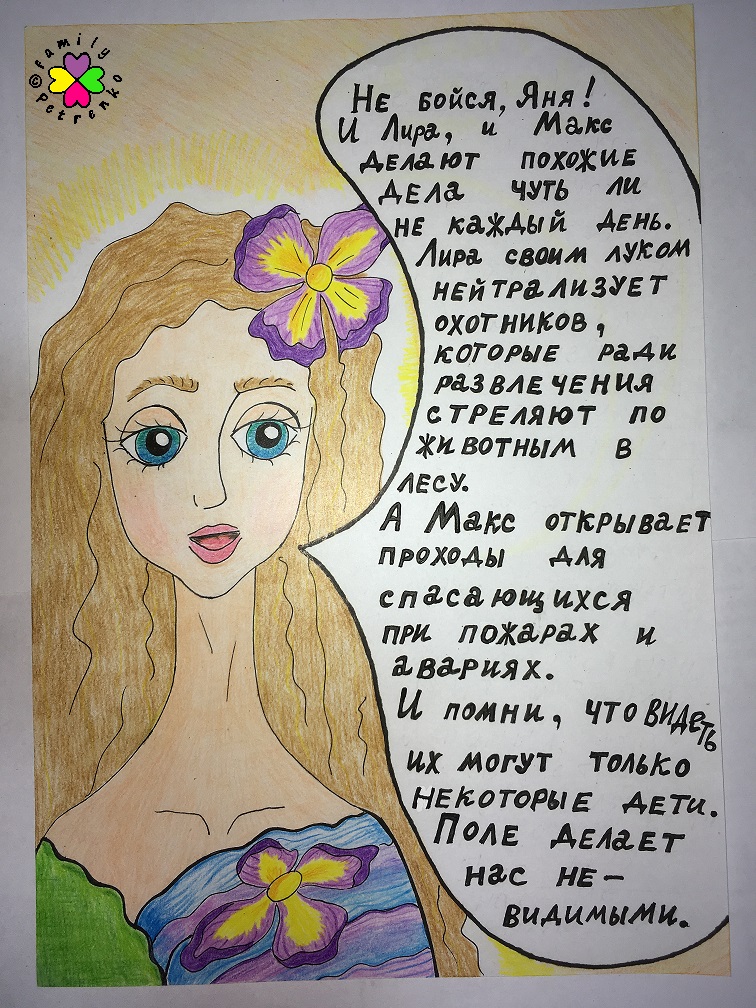 © family
Petrenko
Не бойся, Яня!
И Лира, и Макс
делают похожие
дела чуть ли
не каждый день.
Лира своим луком
нейтрализует
охотников,
которые ради
развлечения
стреляют по
животным в
лесу.
А Макс открывает
проходы для
спасающихся
при пожарах и
авариях.
И помни, что видеть
их могут только
некоторые дети.
Поле делает
нас не–
видимыми.